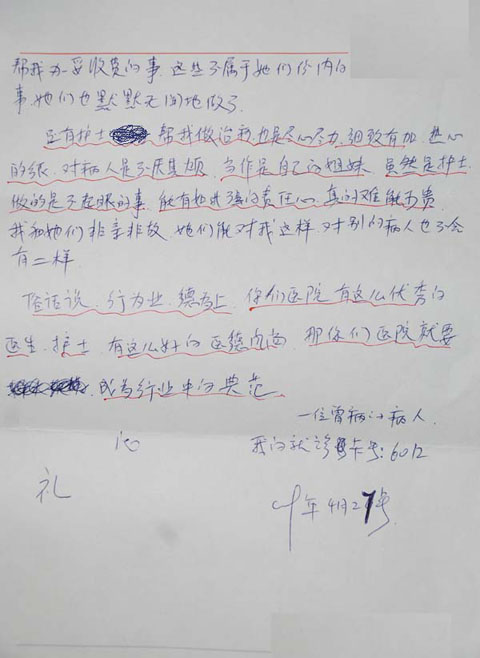 帮我办妥收费的事.这些不属于她们份内的
事.她们也默默无闻地做了.
还有护士 帮我做治疗也是尽心尽力,细致有加.热心
的很.对病人是不厌其烦.当作是自己的姐妹.虽然是护士.
做的是无在眼的事.能有如此强的责任心.真的难能可贵.
我和她们非亲非故.她们能对我这样.对别的病人也不会
有二样.
俗话说.行为业.德为上.你们医院有这么优秀的
医生.护士.有这么好的医德风尚.那你们医院就要
成为行业中的典范.
一位曾病的病人.
沁 我的就诊卡号:6012
礼
年4月27号.